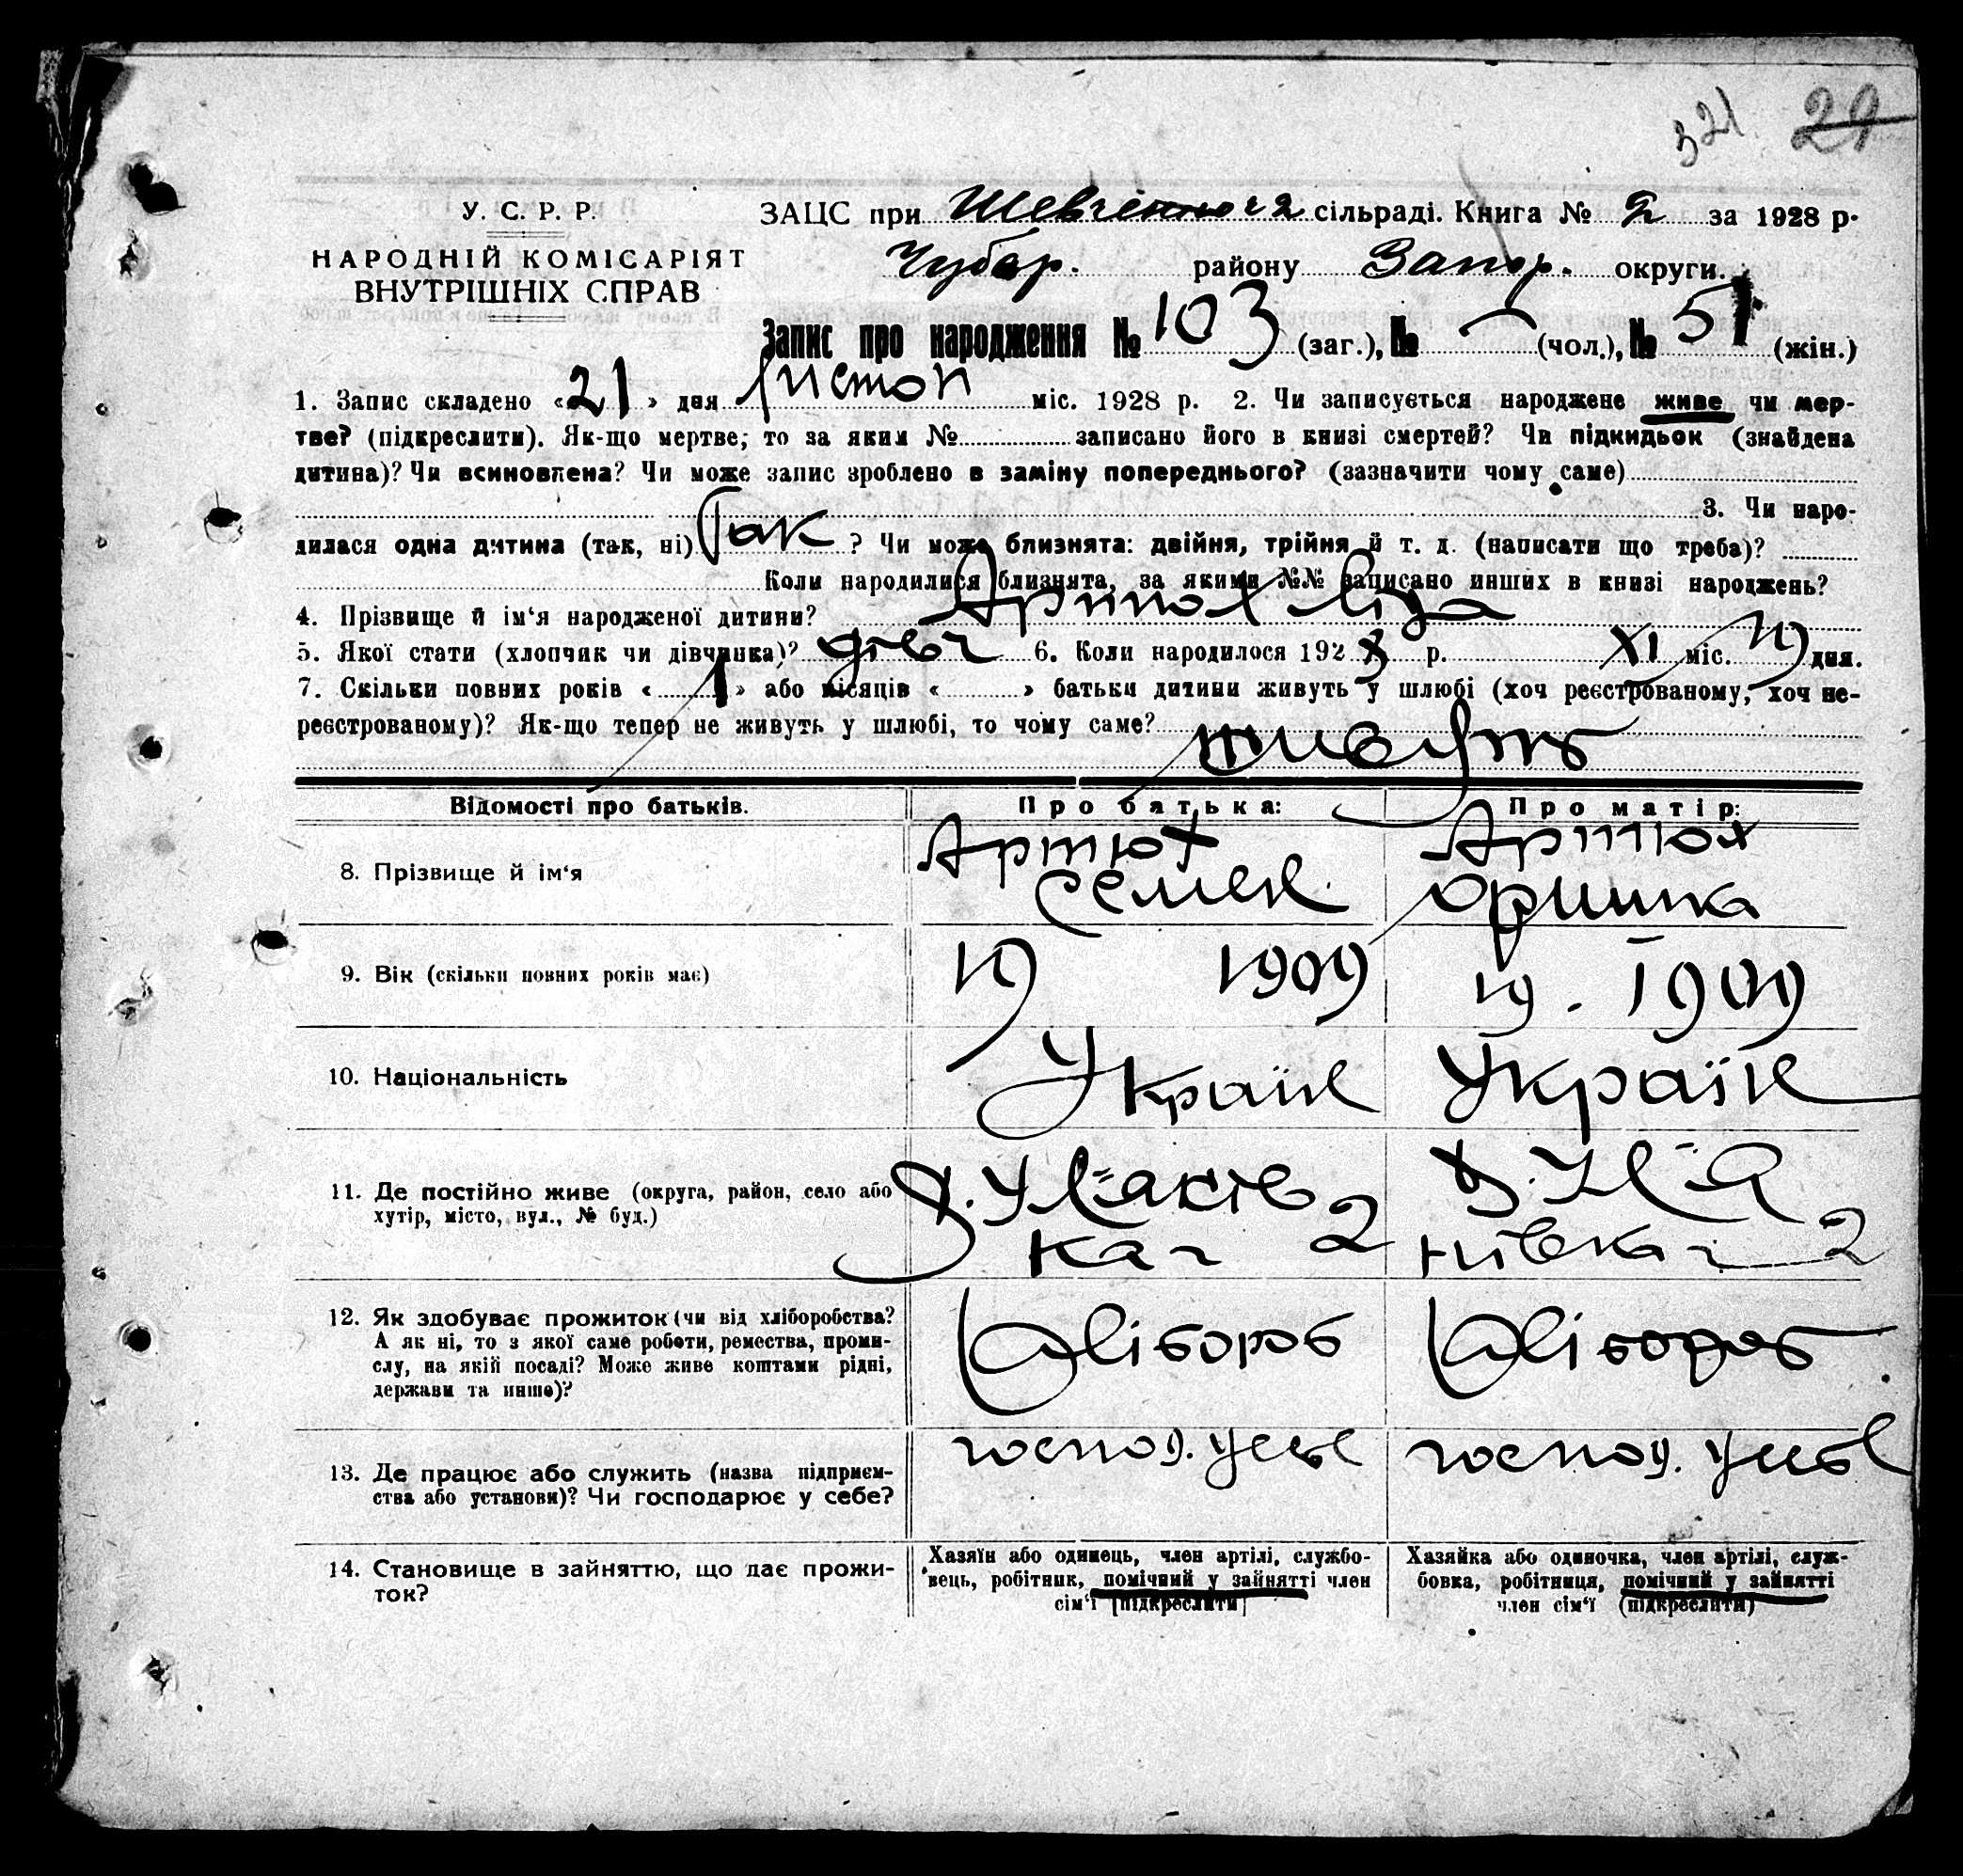 321 29
У. С. Р. Р.
НАРОДНІЙ КОМІСАРІЯТ
ВНУТРІШНІХ СПРАВ
ЗАЦС при сільраді. Книга № 2 за 1928 р.
Чубар. району Запор. округи.
Запис про народження № 103 (заг.), № — (чол.), № 51 (жін.)
1. Запис складено «21» дня листоп міс. 1928 р. 2. Чи записується народжене живе чи мер-
тве? (підкреслити). Як-що мертве, то за яким № записано його в книзі смертей? Чи підкидьок (знайдена
дитина)? Чи всиновлена? Чи може запис зроблено в заміну попереднього? (зазначити чому саме)
3. Чи наро-
дилася одна дитина (так, ні) Так ? Чи може близнята: двійня, трійня й т. д. (написати що треба)?
Коли народилися близнята, за якими №№ записано инших в книзі народжень?
4. Прізвище й ім'я народженої дитини? Артюх Ліза
5. Якої стати (хлопчик чи дівчинка)? дівч 6. Коли народилося 1928 р. XI міс. 19 дня.
7. Скільки повних років «1» або місяців « » батьки дитини живуть у шлюбі (хоч реєстрованому, хоч не-
реєстрованому)? Як-що тепер не живуть у шлюбі, то чому саме? живуть
Відомості про батьків. Про батька: Про матір:
8. Прізвище й ім'я Артюх Семен. Артюх Оришка
9. Вік (скільки повних років має) 19 1909 19. 1909
10. Національність Україн Україн
11. Де постійно живе (округа, район, село або
хутір, місто, вул., № буд.)
12. Як здобуває прожиток (чи від хліборобства?
А як ні, то з якої саме роботи, ремества, проми-
слу, на якій посаді? Може живе коштами рідні,
держави та инше)?
Хлібороб Хлібороб
13. Де працює або служить (назва підприєм-
ства або установи)? Чи господарює у себе?
господ. у себе господ. у себе
14. Становище в зайняттю, що дає прожи-
ток?
Хазяїн або одинець, член артілі, службо-
вець, робітник, помічний у зайнятті член
сім'ї (підкреслити)
Хазяйка або одиночка, член артілі, служ-
бовка, робітниця, помічний у зайнятті
член сім'ї (підкреслити)